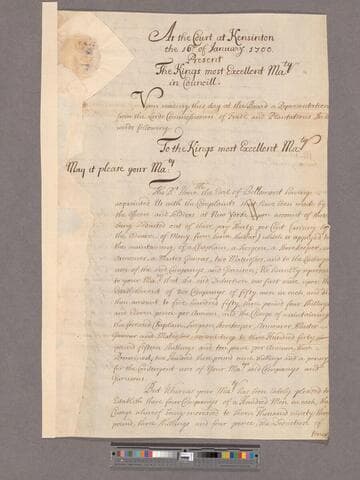 At the Court at Kensinton
the 16th of January 1700.
Present
The Kings most Excellent Maty
in Councill.
Upon reading this day at the Board a Representation
from the Lords Commissioners of Trade and Plantations in the
words following.
To the Kings most Excellent Maty
May it please your Maty
The Rt. Honble the Earl of Bellomont having
acquainted Us with the Complaints that have been made by
the Officers and Soldiers at New Yorke upon account of their
being Deducted out of their pay thirty per Cent (
the of Mony from hence) which is applyed to
the maintaining of a Chaplain, a Surgeon, a Storekeeper, an
Armourer, a Master Gunner, two Matrosses, and to the Contingent
uses of the two Companys and Garrison; We humbly represent
to your Maty that the said Deduction was first made upon the
Establishment of two Companys of fifty men in each and did
then amount to five hundred fifty seven pound four shillings
and eleven pence per Annum, and the Charge of maintaining
the foresaid Chaplain, Surgeon, Storekeeper, Armourer, Master
Gunner and Matrosses, amounting to three Hundred forty
pound fifteen shillings and per Annum, there
Remained, two Hundred pound nine shillings and pence
for the Contingent uses of Your Matys said Companys and
Garrison.
But whereas your Maty has been lately pleased to
Establish there four Companys of a Hundred Men in each, the
Charge whereof being increased to Seven Thousand ninety three
pound, three shillings and four pence, the Deduction